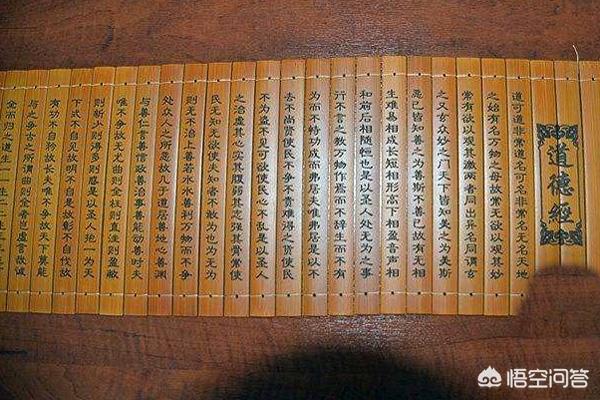 道德經
道可道非常道名可名非常名无名天地
之始有名万物之母故常无欲以观其妙
常有欲以观其徼两者同出异名同谓玄
之又玄众妙之门天下皆知美之为美斯
恶已皆知善之为善斯不善已故有无相
生难易相成长短相形高下相盈音声相
和前后相随恒也是以圣人处无为之事
行不言之教万物作焉而不辞生而不有
为而不恃功成而弗居夫唯弗居是以不
去不尚贤使民不争不贵难得之货使民
不为盗不见可欲使民心不乱是以圣人
之治虚其心实其腹弱其志强其骨常使
民无知无欲使夫知者不敢为也为无为
则无不治上善若水水善利万物而不争
处众人之所恶故几于道居善地心善渊
与善仁言善信政善治事善能动善时夫
唯不争故无尤曲则全枉则直洼则盈敝
则新少则得多则惑是以圣人抱一为天
下式不自见故明不自是故彰不自伐故
有功不自矜故长夫唯不争故天下莫能
与之争古之所谓曲则全者岂虚言哉诚
全而归之道生一一生二二生三三
悟空问答